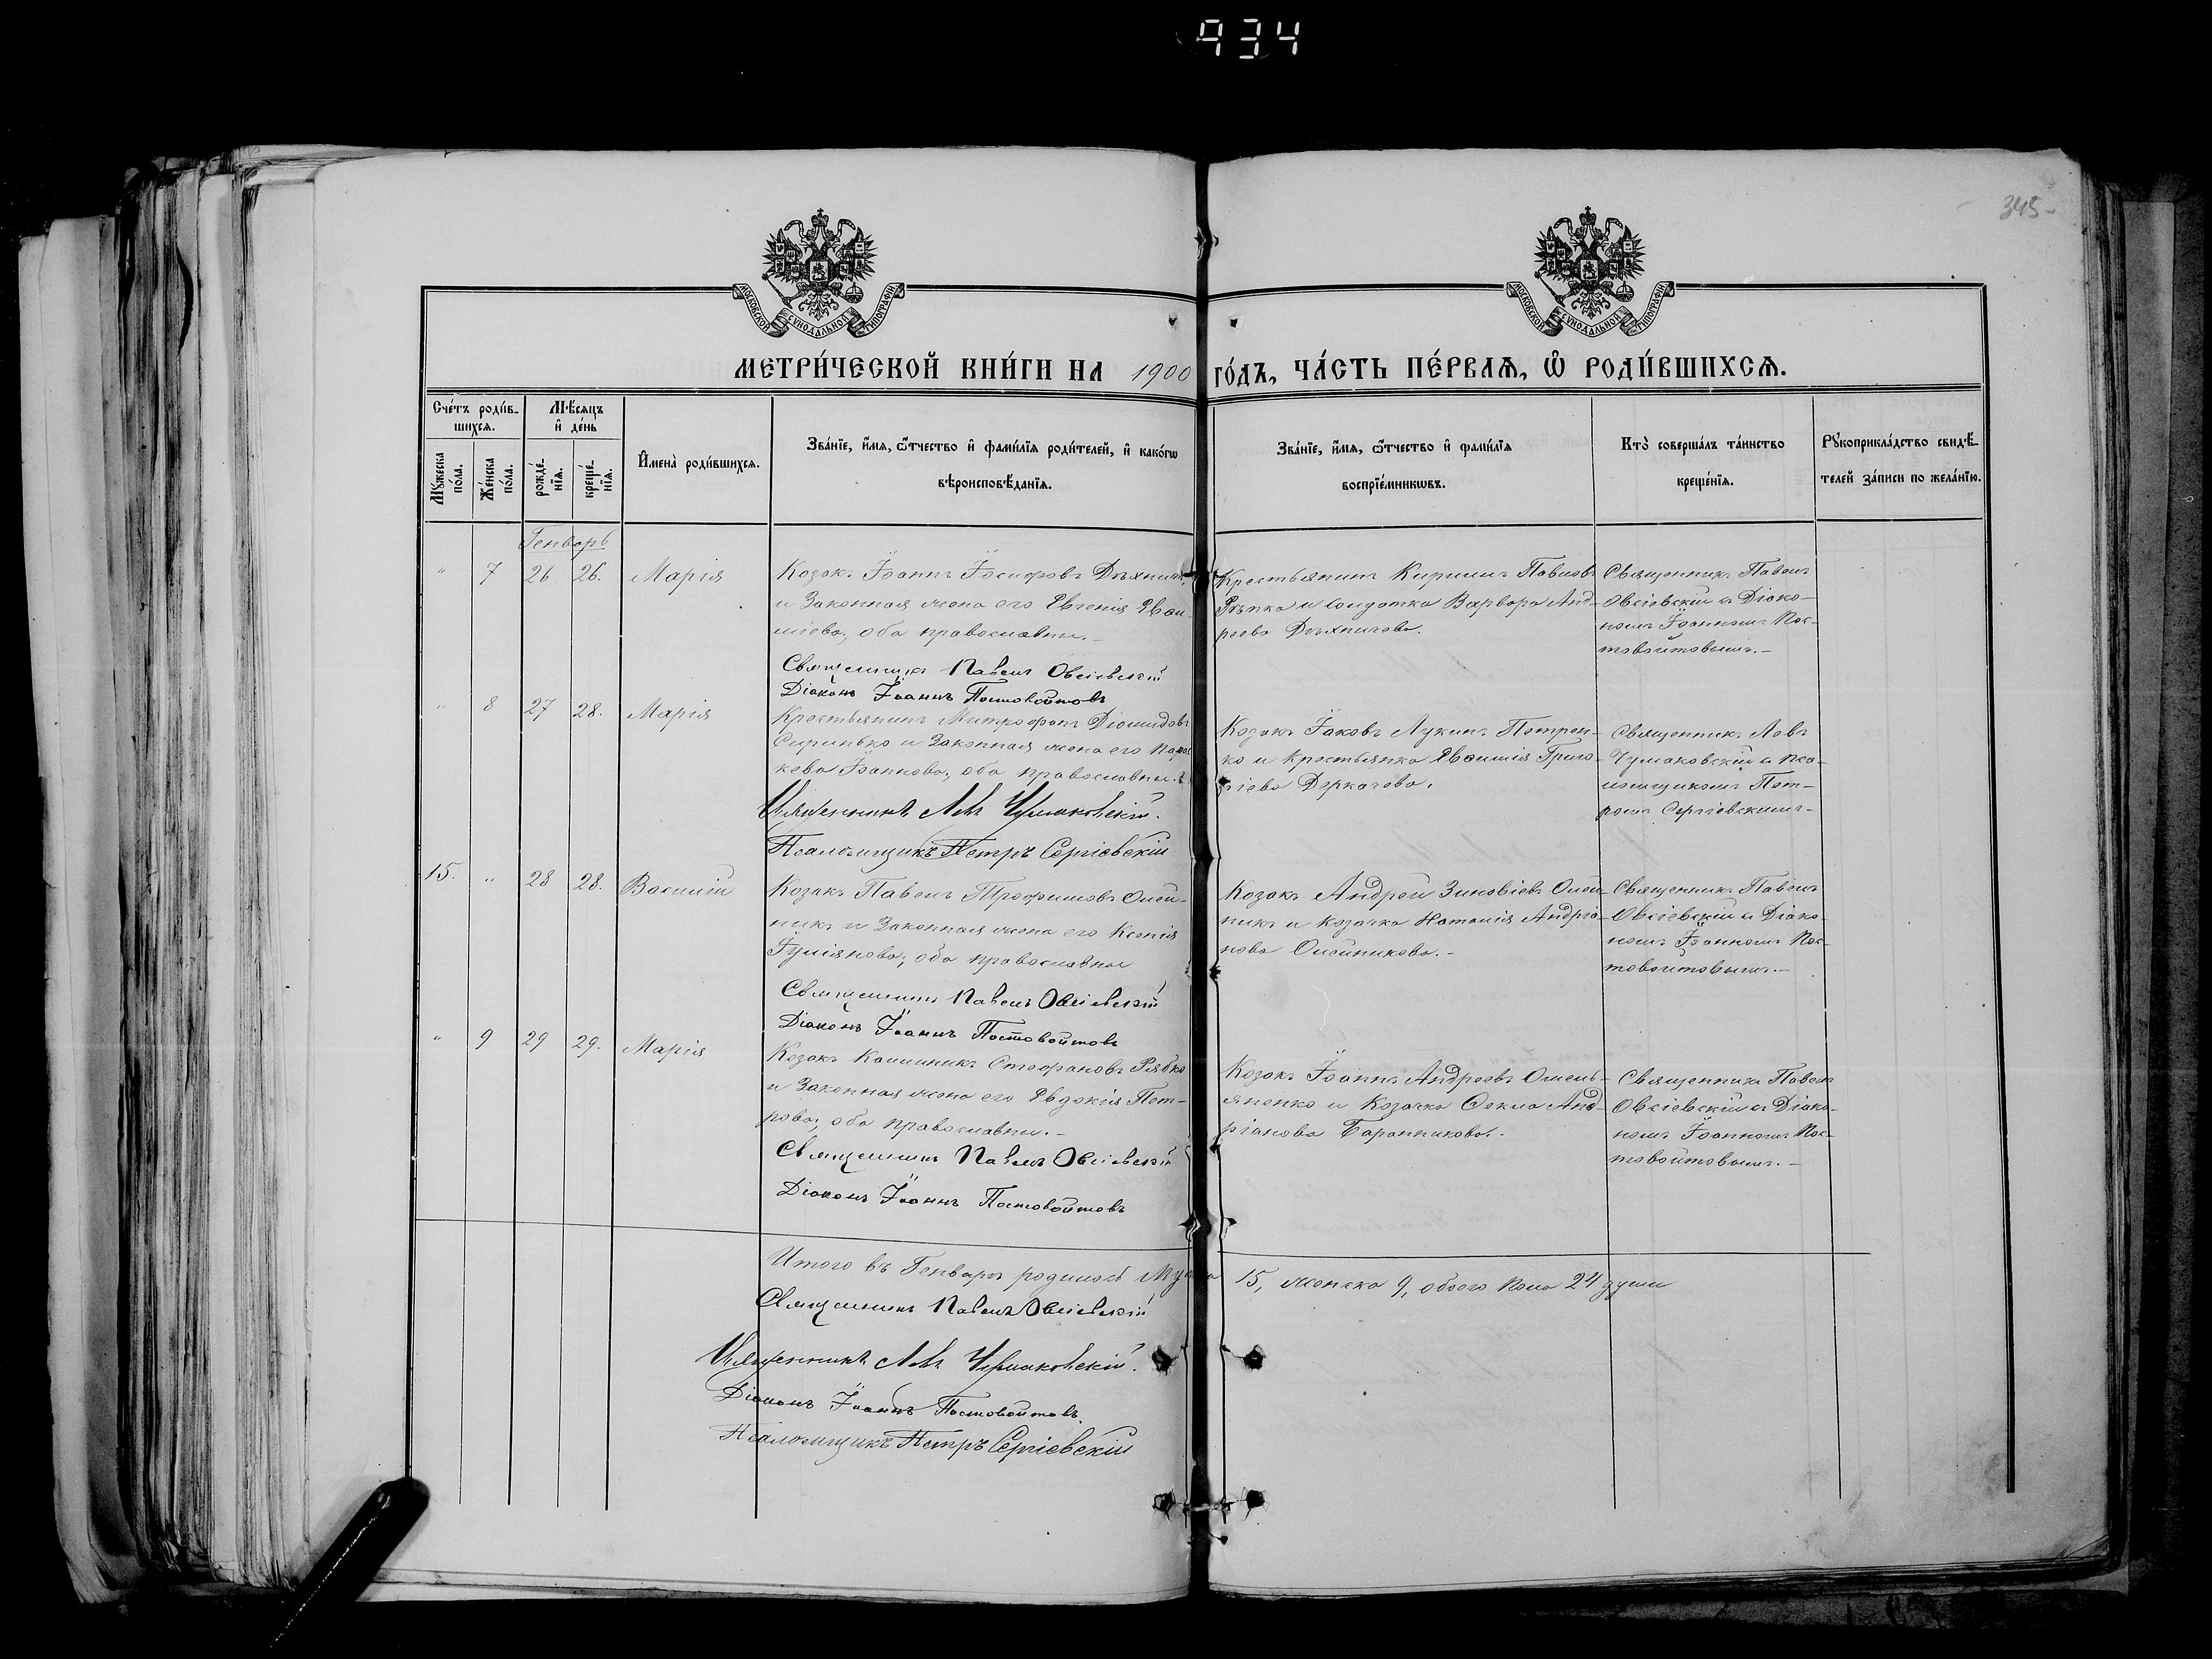 934
345-
МОСКОВСКОЙ СѴНОДАЛЬНОЙ ТИПОГРАФІИ
МОСКОВСКОЙ СѴНОДАЛЬНОЙ ТИПОГРАФІИ
МЕТРИ́ЧЕСКОЙ КНИ́ГИ НА 1900 ГО́ДЪ, ЧА́СТЬ ПЕ́РВАѦ, Ѡ҆ РОДИ́ВШИХСѦ.
Сче́тъ роди́в-
шихсѧ.
Мꙋ́жеска по́ла.
Же́нска по́ла.
Мѣ́сѧцъ
и҆ де́нь
рожде́-
нїѧ.
креще́-
нїѧ.
И҆мена̀ роди́вшихсѧ.
Зва́нїе, и҆́мѧ, ѻ҆́тчество и҆ фами́лїѧ роди́телей, и҆ како́гѡ
вѣроисповѣ́данїѧ.
Зва́нїе, и҆́мѧ, ѻ҆́тчество и҆ фами́лїѧ
воспрїе́мникѡвъ.
Кто̀ соверша́лъ та́инство
креще́нїѧ.
Рꙋкоприкла́дство свидѣ́-
телей за́писи по жела́нїю.
Генварь
" 7 26 26. Марія
Козакъ Іоаннъ Іосифовъ
и законная жена его Евгенія Евфи-
міева, оба православны.-
Священникъ Павелъ Овсіевскій
Діаконъ Іоаннъ Постовойтовъ
Крестьянинъ Кириллъ Павловъ
Рѣпка и солдатка Варвара Анд-
реева Дѣхтярева.
Священникъ Павелъ
Овсіевскій съ Діако-
номъ Іоанномъ Пос-
товойтовымъ.-
" 8 27 28. Марія
Крестьянинъ Митрофанъ Діомидовъ
и законная жена его Парас
кева Іоаннова, оба православны.
Священникъ Левъ Чумаковскій.
Псаломщикъ Петръ Сергіевскій
Козакъ Іаковъ Лукинъ Петрен-
ко и крестьянка Евфимія Григо-
ріева Деркачева.
Священникъ Левъ
Чумаковскій съ пса-
ломщикомъ Пет-
ромъ Сергіевскимъ-
15. " 28 28. Василій
Козакъ Павелъ Трофимовъ Олей-
никъ и законная жена его Ксенія
Іуліанова; оба православны
Священникъ Павелъ Овсіевскій
Діаконъ Іоаннъ Постовойтовъ
Козакъ Андрей Зиновіевъ Олей-
никъ и козачка Наталія Андріа-
нова Олейникова.-
Священникъ Павелъ
Овсіевскій съ Діако-
номъ Іоанномъ Пос-
товойтовымъ.-
" 9 29 29. Марія
Козакъ Каллиникъ Стефановъ Рябко
и законная жена его Евдокія Пет-
рова; оба православны.-
Священникъ Павелъ Овсіевскій
Діаконъ Іоаннъ Постовойтовъ
Козакъ Іоаннъ Андреевъ Омель-
яненко и козачка Ѳекла Анд-
ріанова Баранникова.-
Священникъ Павелъ
Овсіевскій съ Діако-
номъ Іоанномъ Пос-
товойтовымъ.-
Итого въ Генварѣ родилось 15, женска 9, обоего пола 24 души
Священникъ Павелъ Овсіевскій
Священникъ Левъ Чумаковскій.
Діаконъ Іоаннъ Постовойтовъ.
Псаломщикъ Петръ Сергіевскій